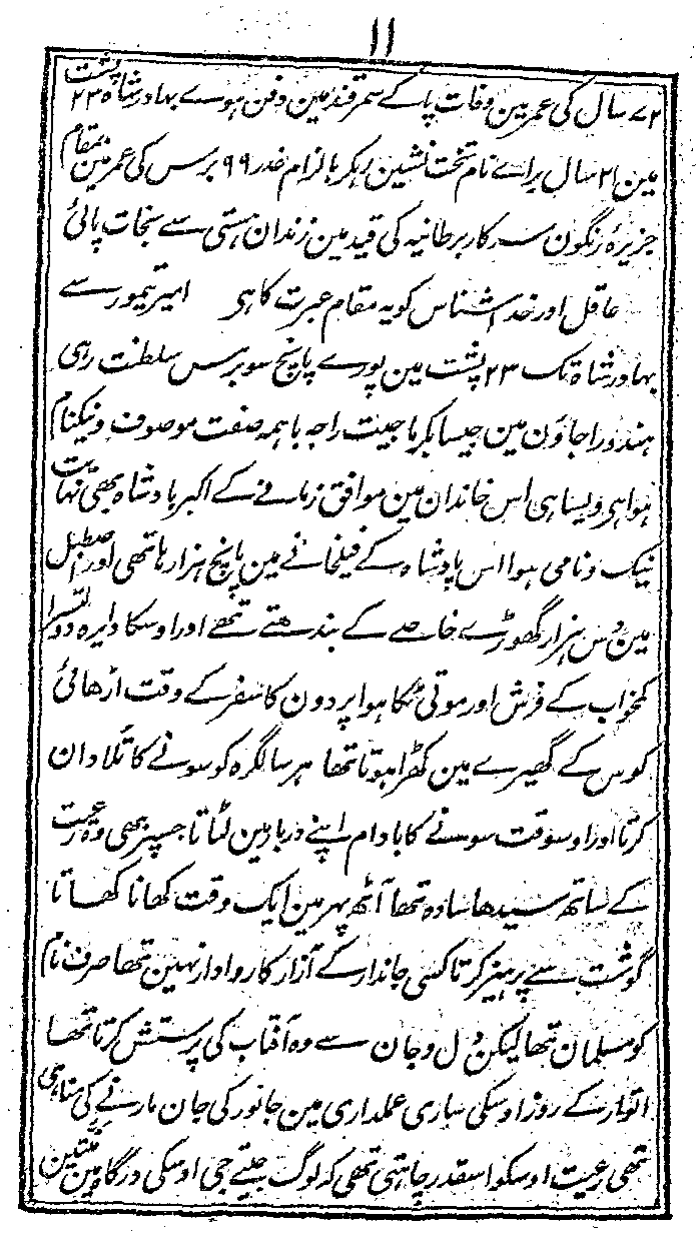 ۱۱
۷۲ سال کی عمر مین وفات پاکے سمرقند مین دفن ہوے بہادرشاہ ۲۳ پشت
مین ۲۱ سال براے نام تخت نشین رہکر بالزام غدر ۹۹ برس کی عمر مین بمقام
جزیرۂ رنگون سرکار برطانیہ کی قید مین زندان ہستی سے نجات پائی
عاقل اور خداشناس کو یہ مقام عبرت کا ہی امیر تیمور سے
بہادرشاہ تک ۲۳ پشت مین پورے پانچ سو برس سلطنت رہی
ہندو راجاؤن مین جیسا بکرماجیت راجہ باہمہ صفت موصوف و نیکنام
ہوا ہی ویسا ہی اس خاندان مین موافق زمانے کے اکبر بادشاہ بھی نہایت
نیک و نامی ہوا اس پادشاہ کے فیلخانے مین پانچ ہزار ہاتھی اور اصطبل
مین دس ہزار گھوڑے خاصے کے بندھتے تھے اور اوسکا دایرہ دولتسرا
کمخواب کے فرش اور موتی ٹکا ہوا پردون کا سفر کے وقت اڑھائی
کوس کے گھیرے مین کھڑا ہوتا تھا ہر سالگرہ کو سونے کا تلادان
کرتا اور اوسوقت سونے کا بادام اپنے دربار مین لٹاتا جسپر بھی وہ رعیت
کے ساتھ سیدھا سادہ تھا آٹھ پہر مین ایک وقت کھانا کھاتا
گوشت سے پرہیز کرتا کسی جاندار کے آزار کا روادار نہین تھا صرف نام
کو مسلمان تھا لیکن دل و جان سے وہ آفتاب کی پرستش کرتا تھا
اتوار کے روز اوسکی ساری عملداری مین جانور کی جان مارنے کی مناہی
تھی رعیت اوسکو اسقدر چاہتی تھی کہ لوگ جیتے جی اوسکی درگاہ مین منتین